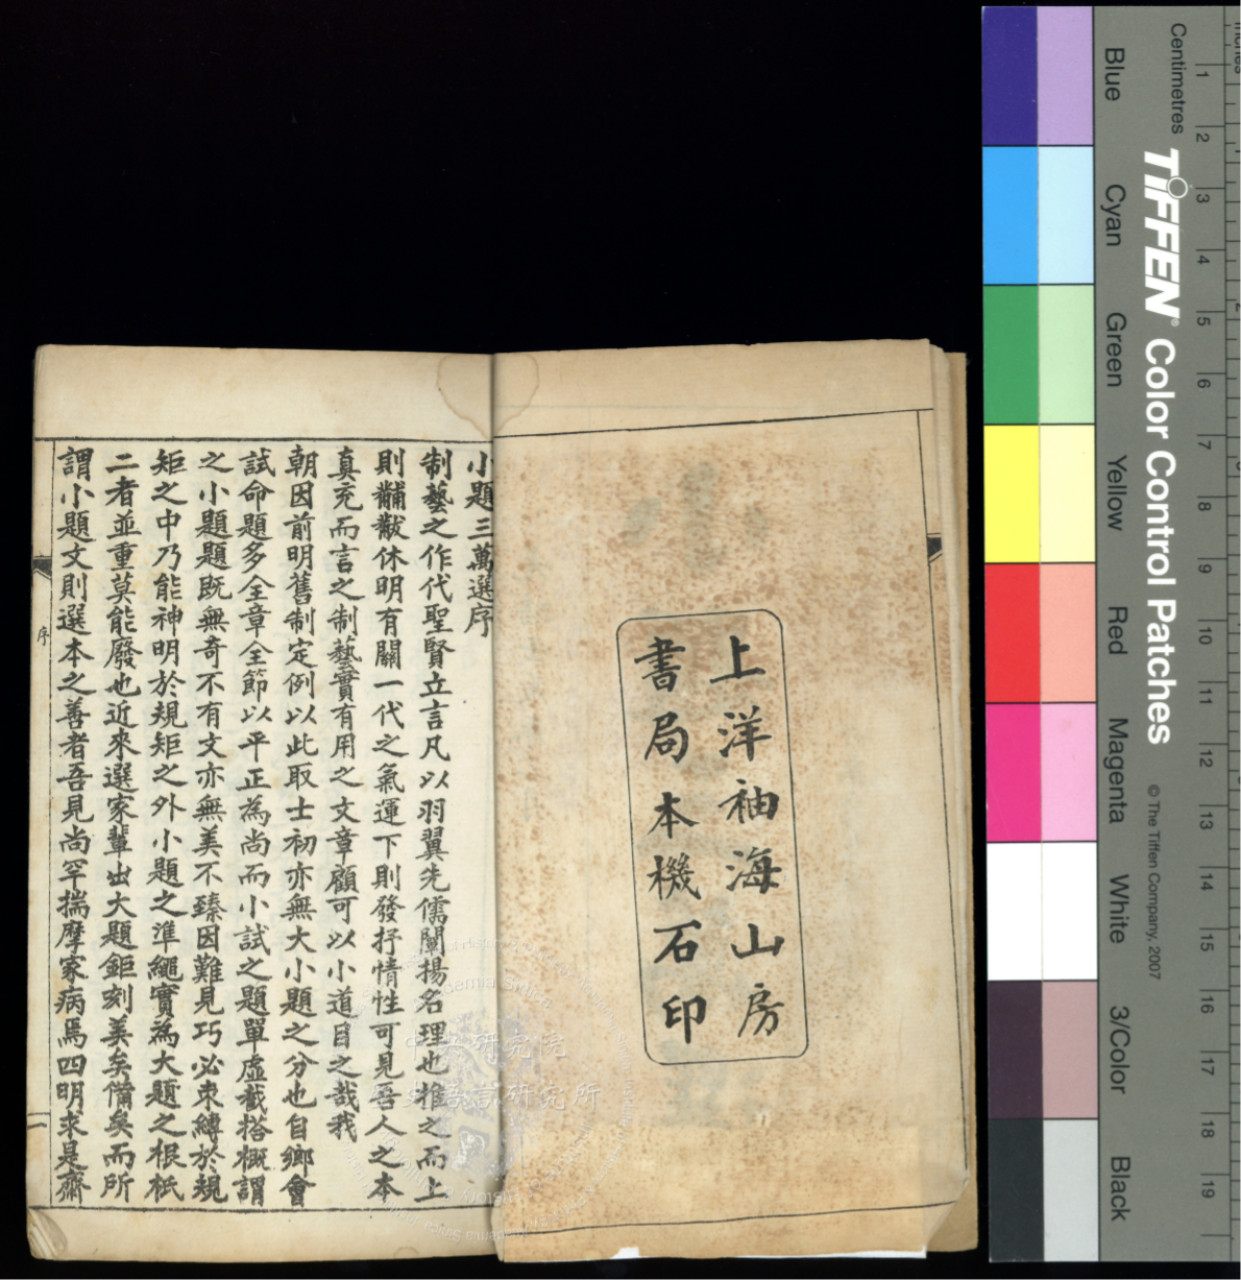 上洋袖海山房
書局本機石印
小題三萬選序
制藝之作代聖賢立言凡以羽翼先儒闡揚名理也推之而上
則黼黻休明有關一代之氣運下則發抒情性可見吾人之本
真充而言之制藝實有用之文章顧可以小道目之哉我
朝因前明舊制定例以此取士初亦無大小題之分也自鄉會
試命題多全章全節以平正為尚而小試之題單虛截搭概謂
之小題題既無奇不有文亦無美不臻因難見巧必束縛於規
矩之中乃能神明於規矩之外小題之準繩實為大題之根柢
二者並重莫能廢也近來選家輩出大題鉅刻美矣備矣而所
謂小題文則選本之善者吾見尚罕揣摩家病焉四明求是齋
序
一
中央研究院
語言研究所
Centimetres
1 2 3 4 5 6 7 8 9 10 11 12 13 14 15 16 17 18 19
TIFFEN® Color Control Patches
© The Tiffen Company, 2007
Blue
Cyan
Green
Yellow
Red
Magenta
White
3/Color
Black